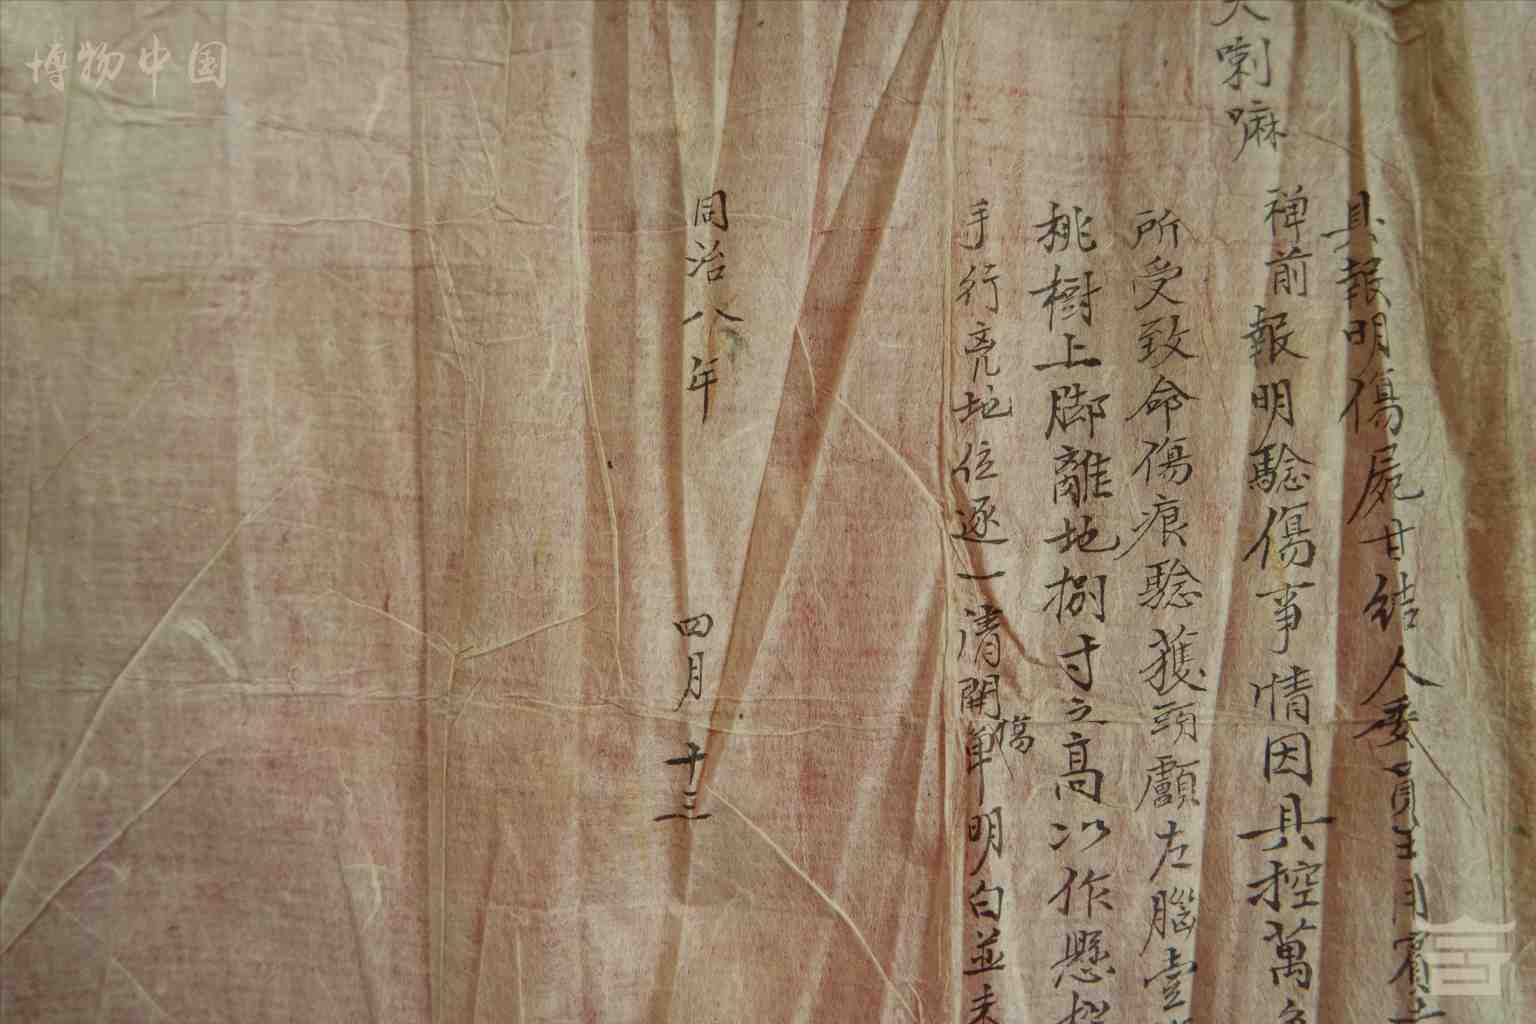 博物中国
具報明傷屍甘結人委員王月賓
大喇嘛
禅前報明騐傷事情因具控萬
所受致命傷痕騐獲頭顱左腦壹
桃樹上脚離地捌寸之高以作懸
手行亮地位逐一清開傷單明白並未
同治八年 四月 十三